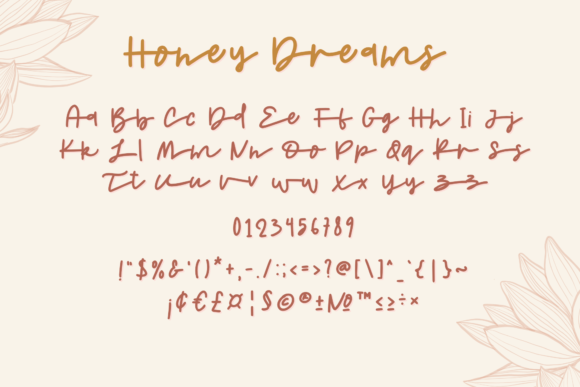 Honey Dreams
Aa Bb Cc Dd Ee Ff Gg Hh Ii Jj
Kk Ll Mm Nn Oo Pp Qq Rr Ss
Tt Uu Vv Ww Xx Yy Zz
0123456789
!"$%&'()*+,-./:;<=>?@[\]^_`{|}~
¡¢€£¤¦§©®±№™≤≥÷×